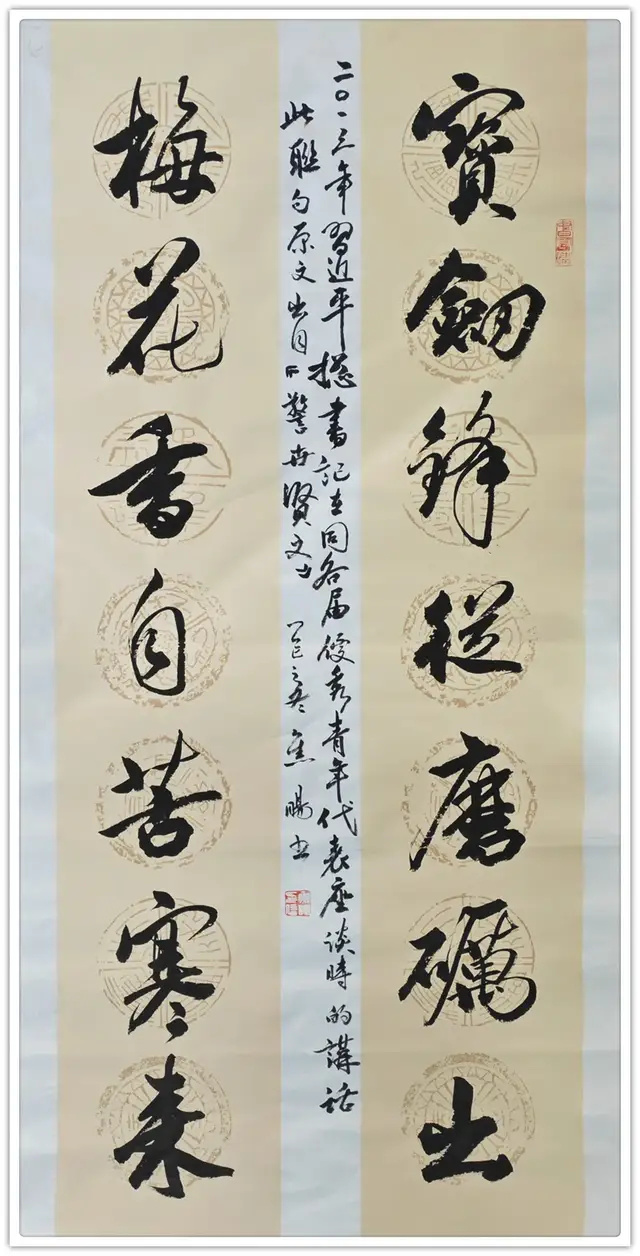 寶劒鋒從磨礪出
二〇一三年習近平摠書記在同各届優秀青年代表座談時的講話
此聯句原文出自「警世賢文」 乙巳之冬 焦 书
梅花香自苦寒來